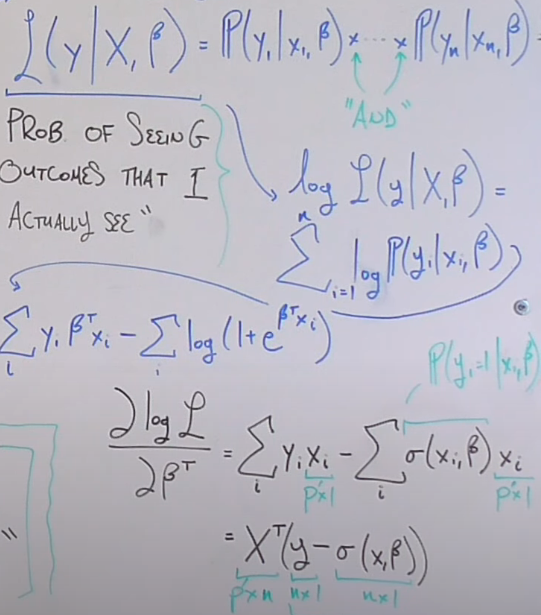 ℒ(y|X,β) = ℙ(y₁|x₁,β) × ⋯ × ℙ(yₙ|xₙ,β) =
"AND"
PROB. OF SEEING
OUTCOMES THAT I
ACTUALLY SEE"
log ℒ(y|X,β) =
∑ᵢ₌₁ⁿ log ℙ(yᵢ|xᵢ,β)
∑ᵢ yᵢ βᵀxᵢ − ∑ᵢ log(1+e^(βᵀxᵢ))
ℙ(yᵢ=1|xᵢ,β)
∂ log ℒ / ∂βᵀ = ∑ᵢ yᵢ xᵢ − ∑ᵢ σ(xᵢ,β) xᵢ
p×1 p×1
= Xᵀ(y − σ(x,β))
p×n n×1 n×1
"